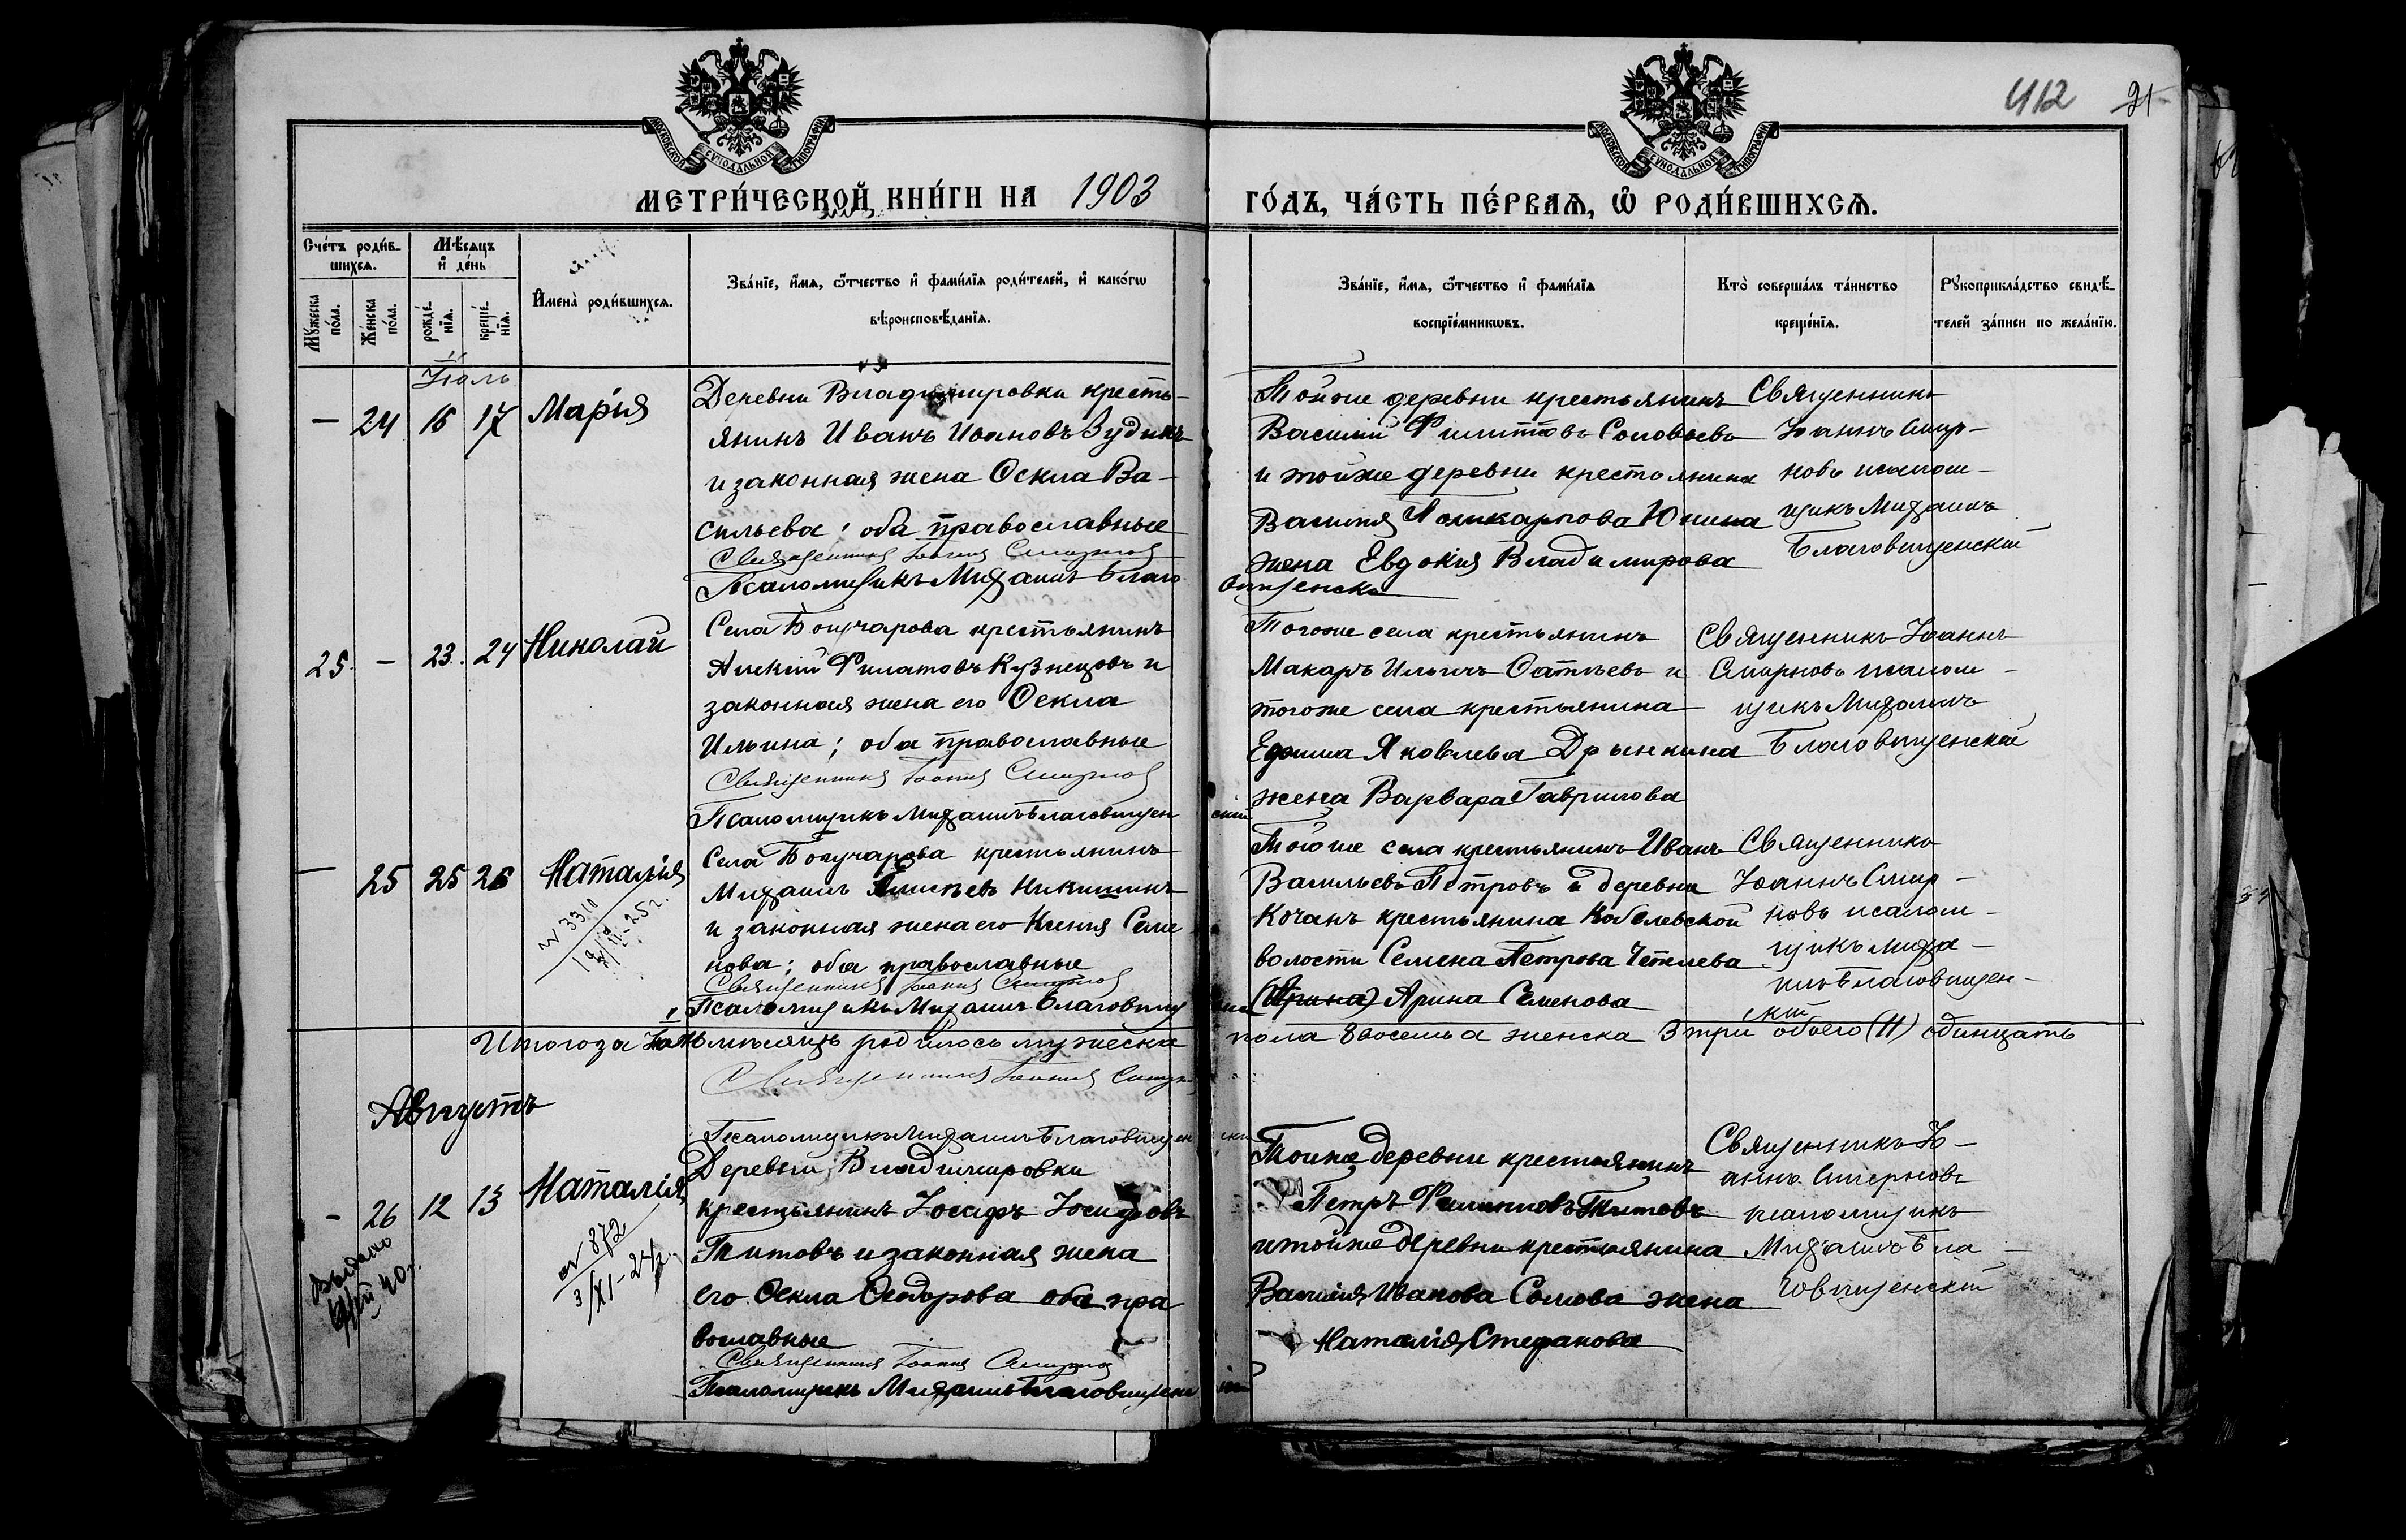 412 21
МОСКОВСКОЙ СѴНОДАЛЬНОЙ ТИПОГРАФІИ
МОСКОВСКОЙ СѴНОДАЛЬНОЙ ТИПОГРАФІИ
МЕТРИ́ЧЕСКОЙ КНИ́ГИ НА 1903
ГО́ДЪ, ЧА́СТЬ ПЕ́РВАѦ, Ѡ҆ РОДИ́ВШИХСѦ.
Сче́тъ роди́в-
шихсѧ.
Мꙋ́жеска по́ла.
Же́нска по́ла.
Мѣ́сѧцъ
и҆ де́нь
рожде́-
нїѧ.
креще́-
нїѧ.
И҆мена̀ роди́вшихсѧ.
Зва́нїе, и҆́мѧ, ѻ҆́тчество и҆ фами́лїѧ роди́телей, и҆ како́гѡ
вѣроисповѣ́данїѧ.
Зва́нїе, и҆́мѧ, ѻ҆́тчество и҆ фами́лїѧ
воспрїе́мникѡвъ.
Кто̀ соверша́лъ та́инство
креще́нїѧ.
Рꙋкоприкла́дство свидѣ́-
телей за́писи по жела́нїю.
Іюль
— 24 16 17 Марія
Деревни Владимировки кресть-
янинъ Иванъ Ивановъ Зудинъ
и законная жена Ѳекла Ва-
сильева; оба православные
Священникъ Іоаннъ Смирнов
Псаломщикъ Михаилъ Благо
вещенскі
Тойже деревни крестьянинъ
Василий Филиттовъ Соловьевъ
и тойже деревни крестьянина
Василія Поликарпова Юнина
жена Евдокія Владимирова
Священникъ
Іоаннъ Смир-
новъ псалом-
щикъ Михаилъ
Благовещенскій
25. — 23. 24 Николай
Села Бочгарова крестьянинъ
Алексій Филатовъ Кузнецовъ и
законная жена его Ѳекла
Ильина; оба православные
Священникъ Іоаннъ Смирнов
Псаломщикъ Михаилъ Благовещен
ский
Тогоже села крестьянинъ
Макаръ Ильичъ и
тогоже села крестьянина
Яковлева Дрынкина
жена Варвара Гаврилова
Священникъ Іоаннъ
Смирновъ псалом-
щикъ Михаилъ
Благовещенскій
— 25 25 26 Наталія
N 3310
Села крестьянинъ
Михаилъ Никишинъ
и законная жена его Ксенія Семе
нова; оба православные
Священникъ Іоаннъ Смирнов
Псаломщикъ Михаилъ Благовещ
Тогоже села крестьянинъ Иванъ
Васильевъ Петровъ и деревни
Кочанъ крестьянина Кобелевской
волости Семена Петрова
(Ирина) Арина Семенова
Священникъ
Іоаннъ Смир-
новъ псалом-
щикъ Миха-
илъ Благовещен-
скій
Итого за Іюль мѣсяцъ родилось мужеска пола 8 восемь а женска 3 три обоего (11) одинцать
Священникъ Іоаннъ Смирн
Псаломщикъ Михаилъ Благовещен ски
Августъ
— 26 12 13 Наталія
N 872
3/XI-24г.
Выдано
40г.
Деревни Владимировки
крестьянинъ Іосифъ Іосифовъ
Титовъ и законная жена
его Ѳекла Ѳеодорова оба пра
вославные
Священникъ Іоаннъ Смирнов
Псаломщикъ Михаилъ Благовещенс кій
Тойже деревни крестьянинъ
Петръ Филипповъ Титовъ
и тойже деревни крестьянина
Василія Иванова Сомова жена
Наталія Стефанова
Священникъ Іо-
аннъ Смирновъ
псаломщикъ
Михаилъ Бла-
говещенскій